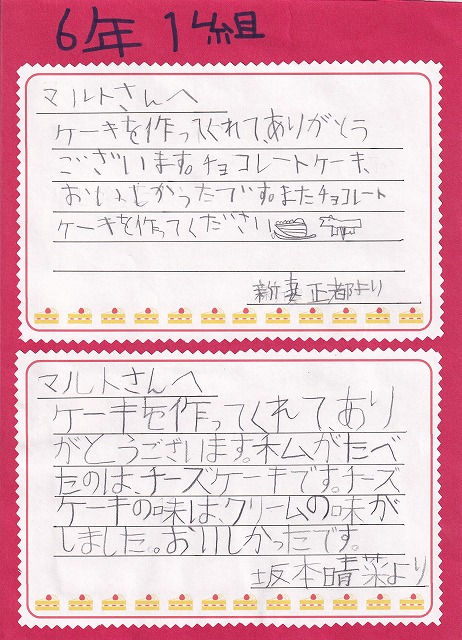 6年1組
マルトさんへ
ケーキを作ってくれて、ありがとう
ございます。チョコレートケーキ、
おいしかったです。またチョコレート
ケーキを作ってください
新妻正都より
マルトさんへ
ケーキを作ってくれて、あり
がとうございます。私がたべ
たのは、チーズケーキです。チーズ
ケーキの味は、クリームの味が
しました。おいしかったです。
坂本晴菜より